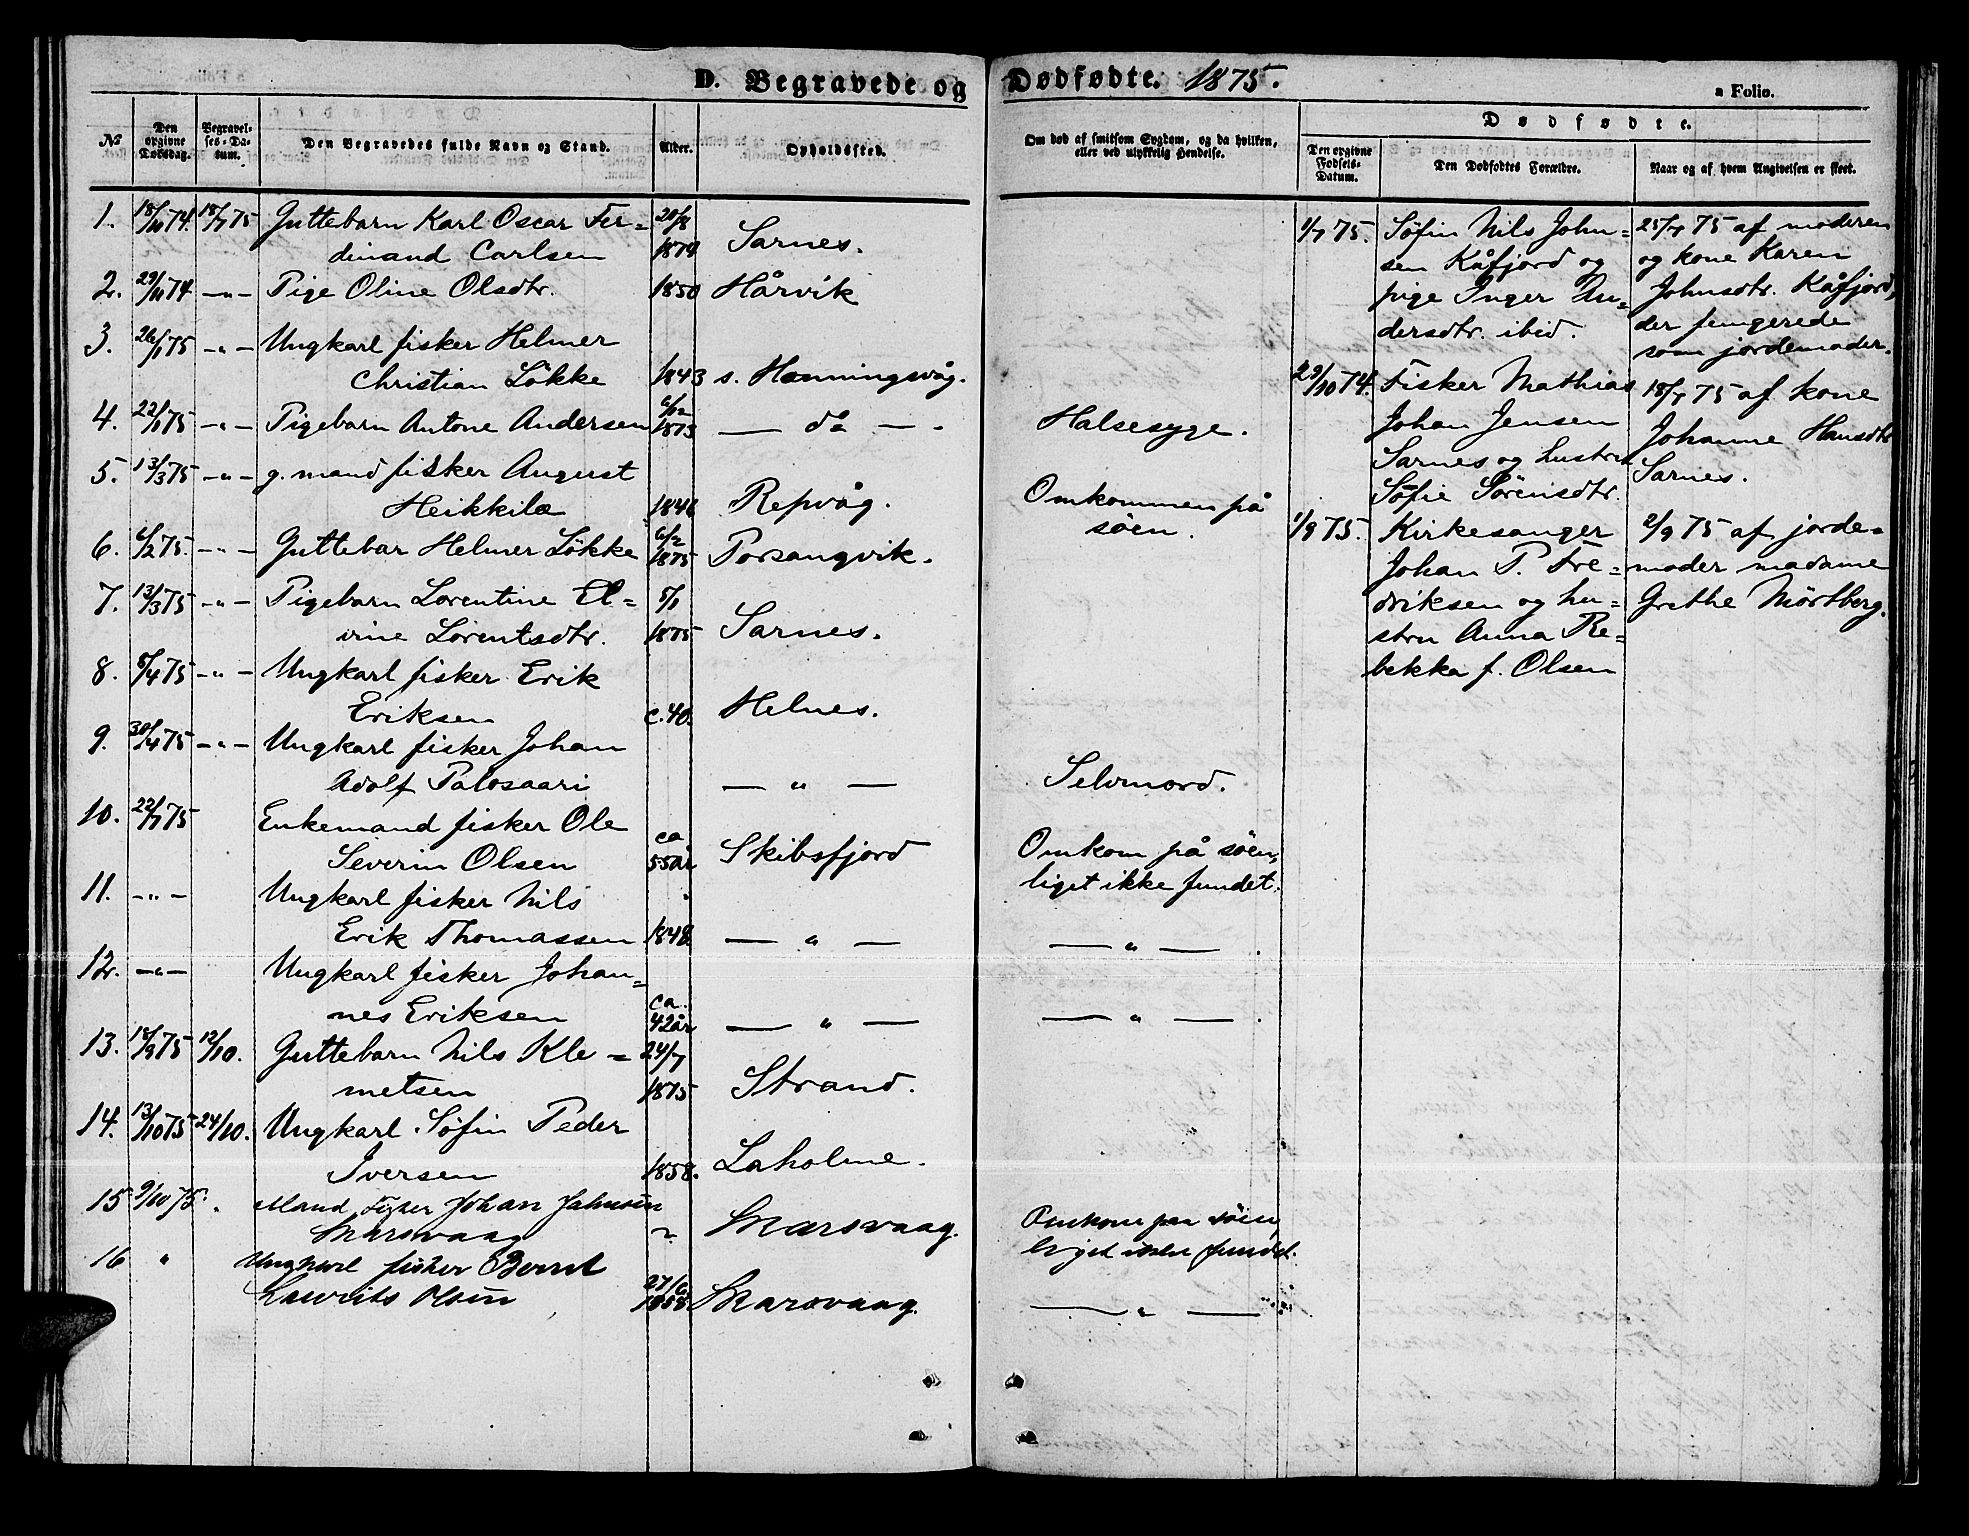 D. Begravede og Dødfødte. 1875.
a Folio.
№ Den opgivne Dødsdag. Begravelses-Datum. Den Begravedes fulde Navn og Stand. Alder. Opholdssted.
Om død af smitsom Sygdom, og da hvilken, eller ved ulykkelig Hendelse.
Dødfødte.
Den opgivne Fødsels-Datum. Den Dødfødtes Forældre. Naar og af hvem Angivelsen er skeet.
1. 18/10 74. 18/7 75 Guttebarn Karl Oscar Fer=
dinand Carlsen 1874 Sarnes.
2. 29/10 74 -"- Pige Oline Olsdtr. 1850 Hårvik
3. 26/1 75 -"- Ungkarl fisker Helmer
Christian Lökke 1843 s. Honningsvåg.
4. 22/1 75 -"- Pigebarn Antone Andersen 6/12 1873 — do — Halsesyge.
5. 13/3 75 -"- g. mand fisker August
Heikkilæ 1846 Repvåg. Omkommen på
söen.
6. 6/2 75. -"- Guttebar Helmer Lökke 6/2 1875 Porsangvik.
7. 13/3 75 -"- Pigebarn Lorentine El=
vine Lorentsdtr. 5/1 1875 Sarnes.
8. 5/4 75 -"- Ungkarl fisker Erik
Eriksen c. 40. Helnes.
9. 30/4 75 -"- Ungkarl fisker Johan
Adolf Palosaari — " — Selvmord.
10. 22/7 75 Enkemand fisker Ole
Severin Olsen ca 55 år Skibsfjord Omkom på söen,
liget ikke fundet.
11. -"- Ungkarl fisker Nils
Erik Thomassen 1848 — " — — " — .
12. -"- Ungkarl fisker Johan=
nes Eriksen ca. 42 år — " — — " — .
13. 18/9 75 12/10. Guttebarn Nils Kle=
metsen 24/7 1875 Strand.
14. 13/10 75 24/10. Ungkarl. Söfin Peder
Iversen 1858. Laholme.
15 9/10 75. " Mand Fisker Johan Johnsen
Skarsvaag " Skarsvaag. Omkom paa söen,
liget ikke fundet.
16 " Ungkarl fisker Bernt
Laurits Olsen 27/6 1858. Skarsvaag. — " —
1/7 75. Söfin Nils John=
sen Kåfjord og
pige Inger An=
dersdtr. ibid.
25/7 75 af moderen
og kone Karen
Johnsdtr. Kåfjord,
der fungerede
som jordemoder.
29/10 74. Fisker Mathias
Johan Jensen
Sarnes og hustru
Sofie Sörensdtr.
18/7 75 af kone
Johanne Hansdtr
Sarnes.
1/9 75. Kirkesanger
Johan P. Fre=
driksen og hu=
stru Anna Re=
bekka f. Olsen
2/9 75 af jorde=
moder madame
Grethe Mörtberg.